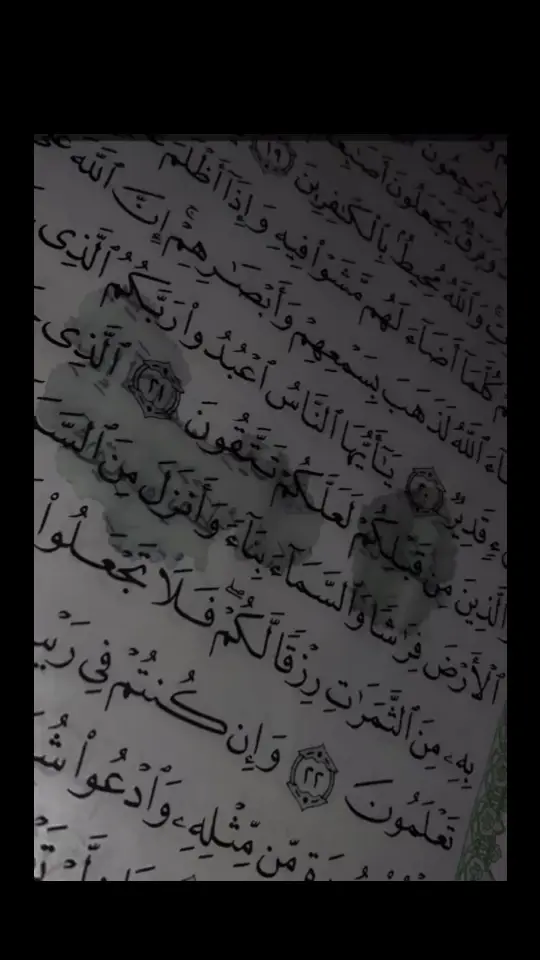 لَا يَرْجِعُونَ
وَبَرْقٌ يَجْعَلُونَ
وَٱللَّهُ مُحِيطٌۢ بِٱلْكَٰفِرِينَ ١٩
كُلَّمَآ أَضَآءَ لَهُم مَّشَوْا۟ فِيهِ وَإِذَآ أَظْلَمَ
ٱللَّهُ لَذَهَبَ بِسَمْعِهِمْ وَأَبْصَٰرِهِمْ ۚ إِنَّ ٱللَّهَ عَلَىٰ
قَدِيرٌ ٢٠ يَٰٓأَيُّهَا ٱلنَّاسُ ٱعْبُدُوا۟ رَبَّكُمُ ٱلَّذِى
وَٱلَّذِينَ مِن قَبْلِكُمْ لَعَلَّكُمْ تَتَّقُونَ ٢١ ٱلَّذِى
ٱلْأَرْضَ فِرَٰشًا وَٱلسَّمَآءَ بِنَآءً وَأَنزَلَ مِنَ ٱلسَّ
بِهِۦ مِنَ ٱلثَّمَرَٰتِ رِزْقًا لَّكُمْ ۖ فَلَا تَجْعَلُوا۟
تَعْلَمُونَ ٢٢ وَإِن كُنتُمْ فِى رَيْبٍ
مِّن مِّثْلِهِۦ وَٱدْعُوا۟